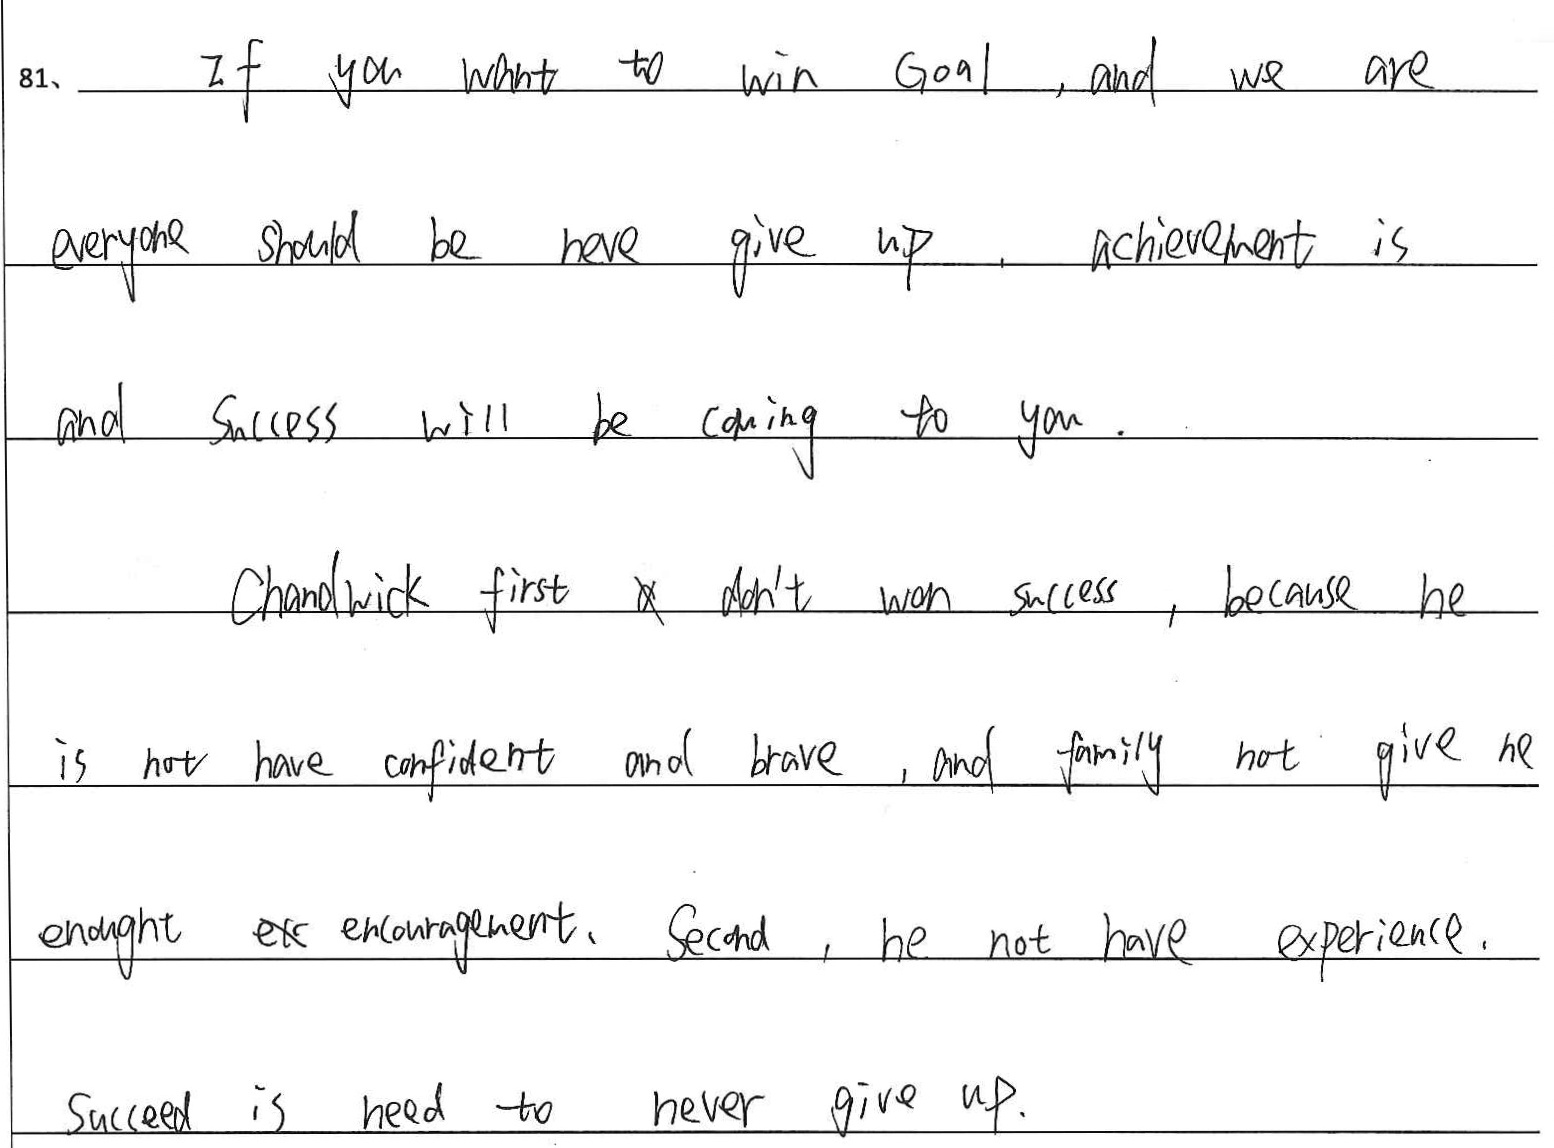 81、 If you want to win Goal , and we are
everyone should be neve give up . achievement is
and success will be coming to you .
Chandwick first don't won success , because he
is not have confident and brave , and family not give he
enought encouragement. Second , he not have experience.
Succeed is need to never give up.